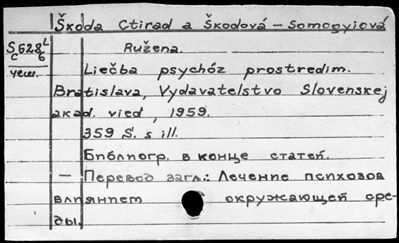 Škoda Ctirad a Škodová-Somogyiová
Ružena.
S628
Liečba psychóz prostredim.
Bratislava, Vydavatelstvo Slovenskej
akad. vied, 1959.
359 S. s ill.
Библиогр. в конце статей.
— Перевод загл.: Лечение психозов
влиянием окружающей сре-
ды.